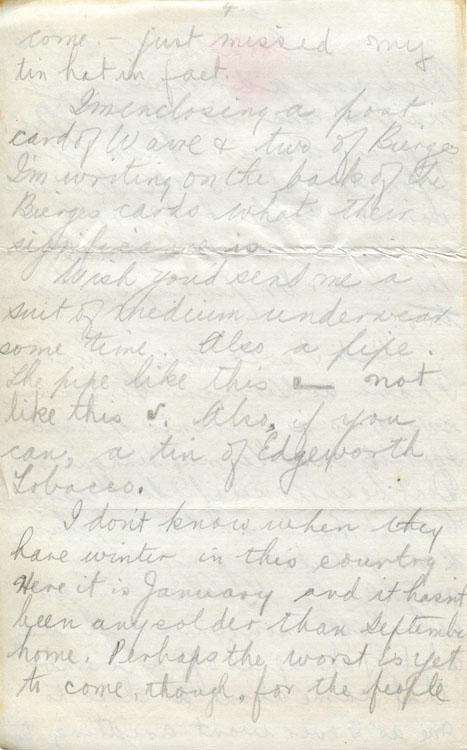 4
come. – just missed my
tin hat in fact.
I'm enclosing a post
card of Wavre & two of Bierges
I'm writing on the back of the
Bierges cards what their
significance is.
Wish you'd send me a
suit of medium underwear
some time. Also a pipe.
The pipe like this not
like this. Also, if you
can, a tin of Edgeworth
Tobacco.
I don't know when they
have winter in this country
Here it is January and it hasn't
been any colder than September
home. Perhaps the worst is yet
to come, though, for the people